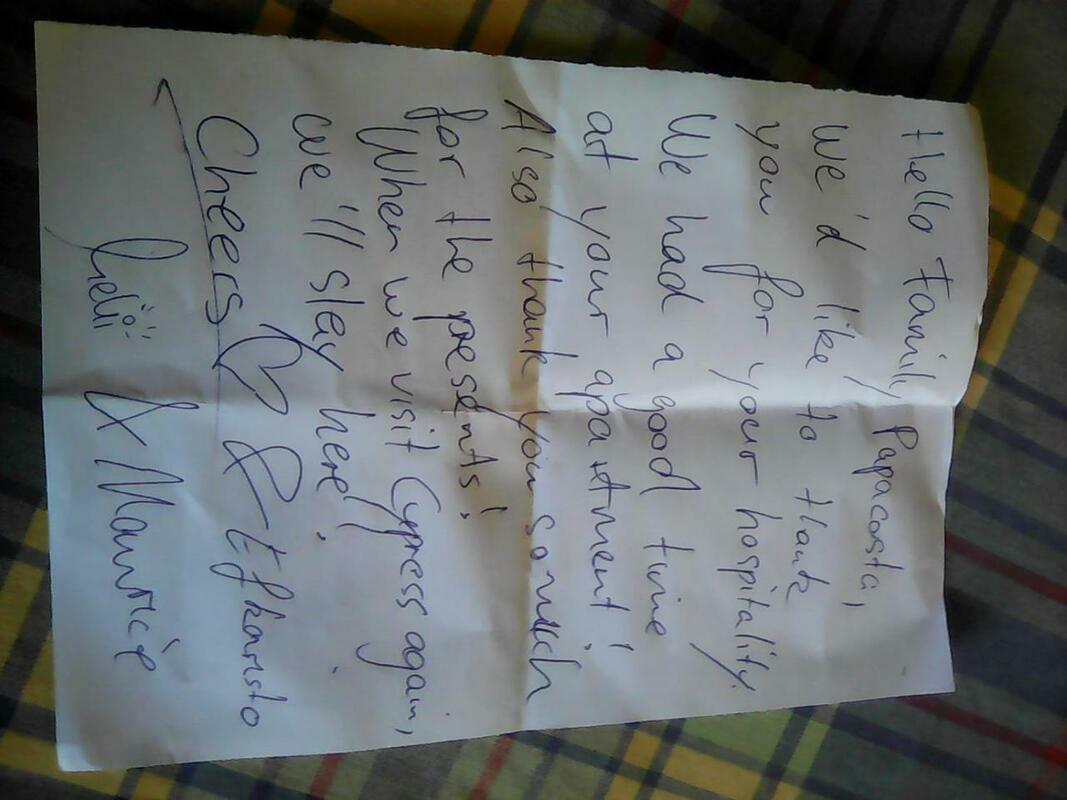 Hello Family Papacosta,
We'd like to thank
you for your hospitality.
We had a good time
at your apartment!
Also thank you so much
for the presents!
When we visit Cypress again,
we'll stay here!
Cheers & Efkaristo
& Maurice